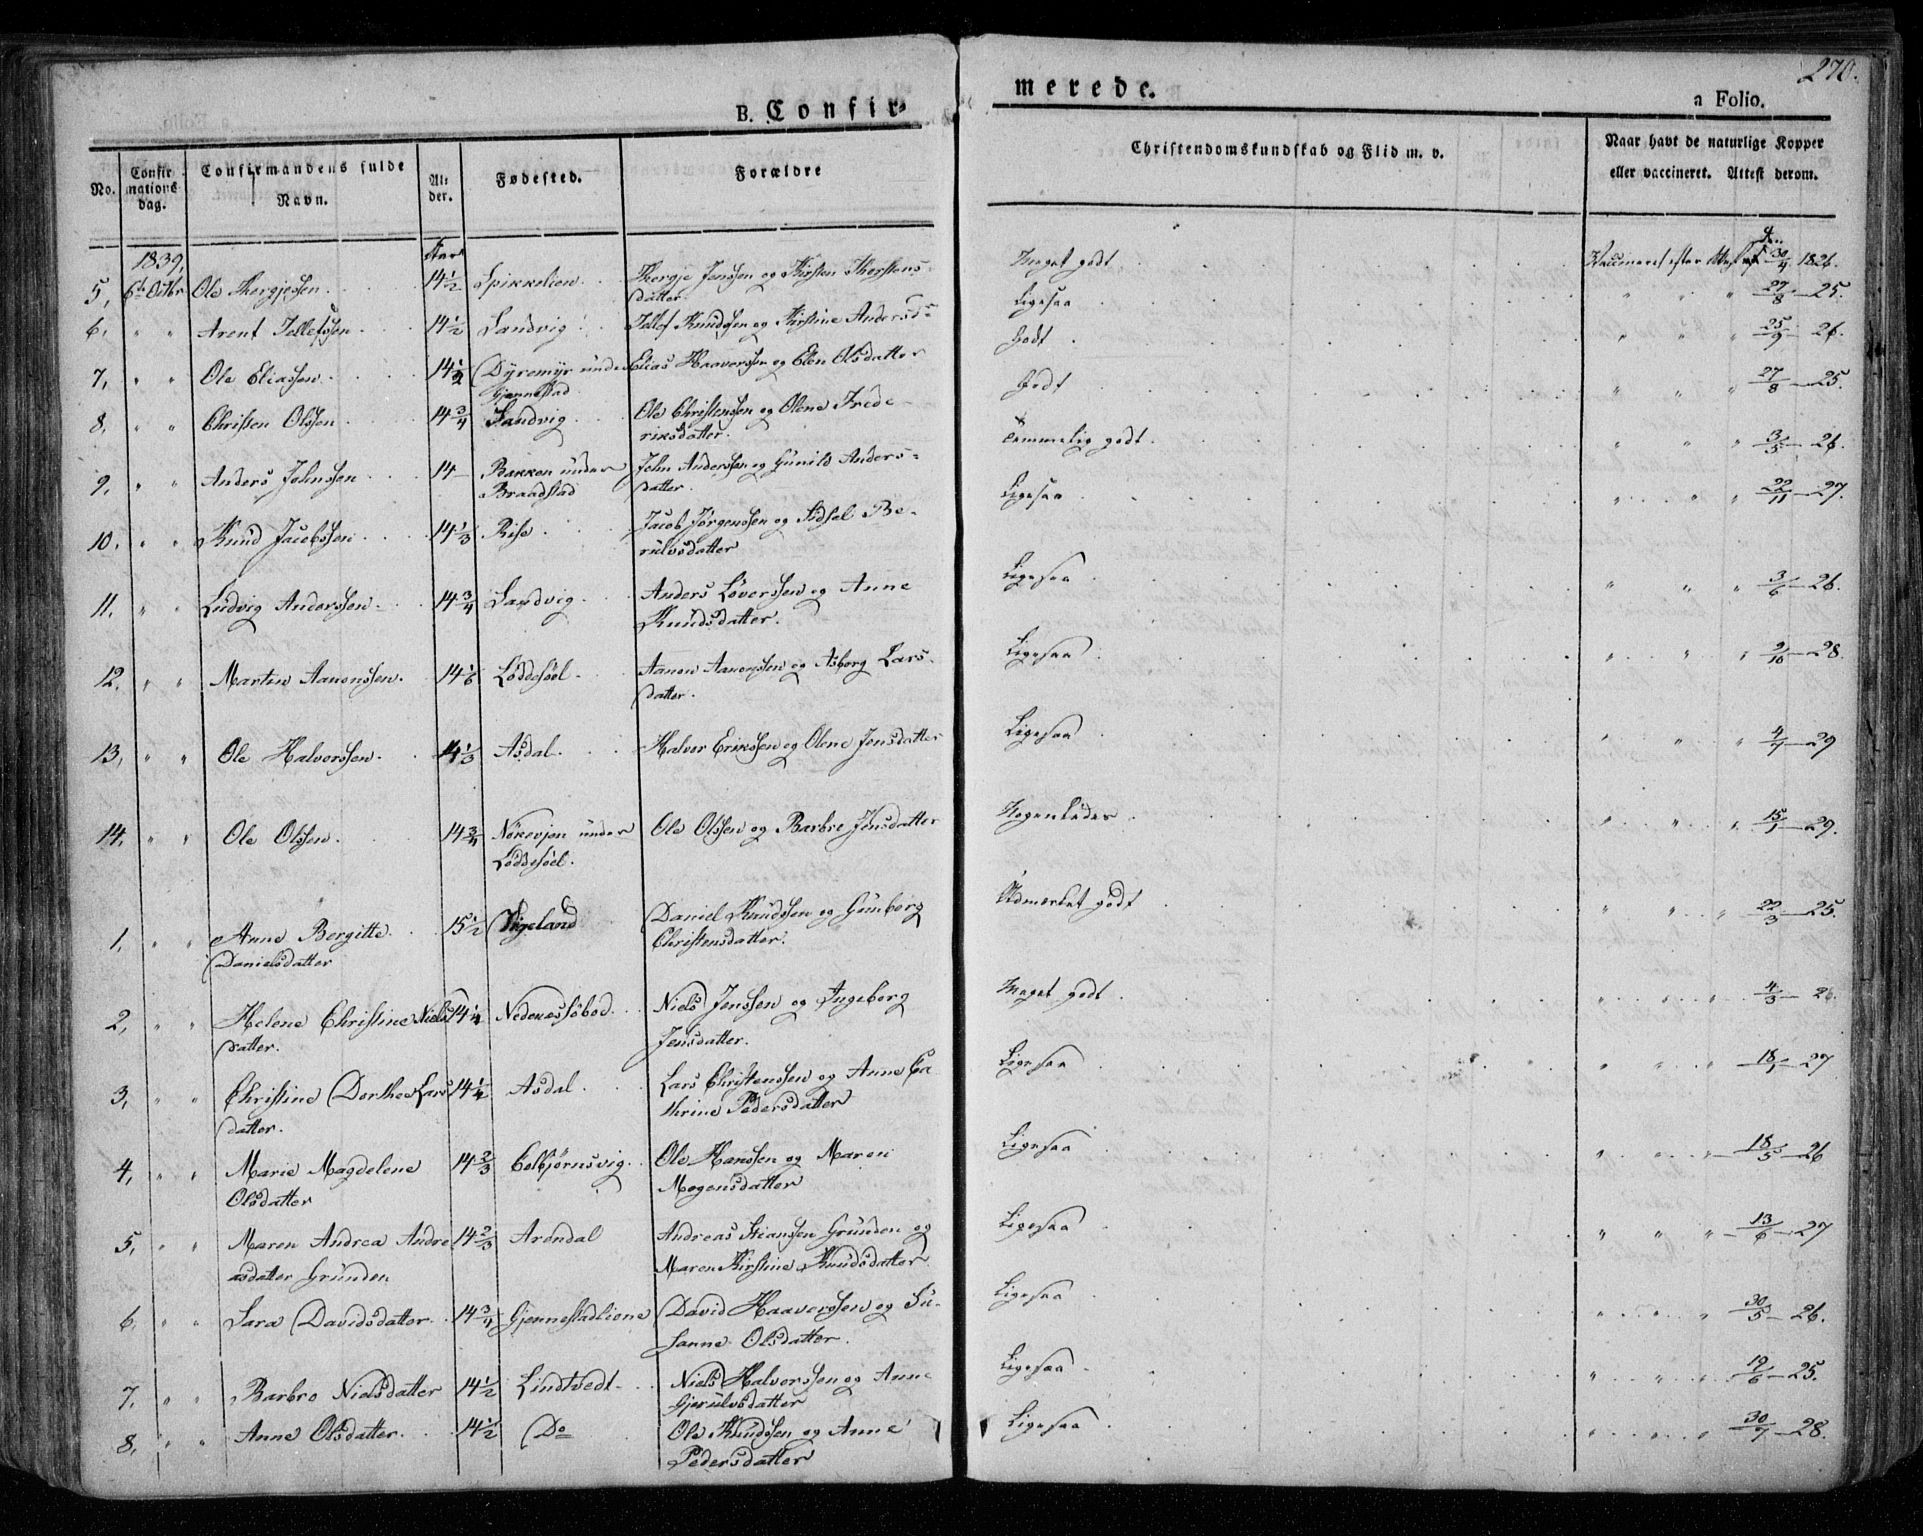 270.
B. Confir-
merede.
a Folio.
No.
Confir
mations
dag.
Confirmandens fulde
Navn.
Al-
der.
Fødested.
Forældre
Christendomskundskab og Flid m. v.
Naar havt de naturlige Kopper
eller vaccineret. Attest derom.
1839, Aar
5, 6te Octbr Ole Thergjesen. 14 1/2 Spikkelien. Thergje Jenssen og Kirsten Therstens-
datter. Meget godt Vaccineret efter Attest af den 30/4 1826.
6, " " Arent Jellefssen 14 1/2 Sandvig Jellef Knudssen og Kirstine Andersd: Ligesaa " " " 27/8 25.
7, " " Ole Eliassen. 14 1/2 Dyremyr under
Gjennestad Elias Haaverssen og Elen Olsdatter Godt " " " 25/9 26.
8, " " Christen Olssen 14 3/4 Sandvig. Ole Christenssen og Olene Frede-
riksdatter. Godt " " " 27/8 25.
9, " " Anders Johnssen 14 Bakken under
Braadstad John Anderssen og Gunild Anders-
datter. Temmelig godt. " " " 3/5 26.
10, " " Knud Jacobssen 14 1/3 Rise Jacob Jørgenssen og Sidsel Be-
rulvsdatter Ligesaa " " " 22/11 27.
11. " " Ludvig Anderssen. 14 3/4 Sandvig. Anders Løverssen og Anne
Knudsdatter. Ligesaa " " " 3/6 26.
12. " " Martin Aanonssen. 14 1/6 Løddesöel. Aanon Aanonssen og Asborg Lars-
datter. Ligesaa " " " 9/10 28.
13, " " Ole Halverssen. 14 1/3 Asdal. Halver Erikssen og Olene Jensdatter Ligesaa " " " 4/7 29
14, " " Ole Olssen. 14 3/4 under
Løddesöel. Ole Olssen og Barbre Jensdatter Nogenledes " " " 15/1 29.
1, " " Anne Bergitte
Danielsdatter 15 1/2 Vigeland Daniel Knudssen og Gunborg
Christensdatter. Udmærket godt " " " 22/3 25.
2, " " Helene Christine Niels
datter. 14 1/4 Nedenæssöbod. Niels Jenssen og Ingeborg
Jensdatter. Meget godt " " " 4/3 26.
3, " " Christine Dorthea Lars
datter. 14 1/4 Asdal. Lars Christenssen og Anne Ca
thrine Pedersdatter Ligesaa " " " 18/1 27
4, " " Marie Magdelene
Olsdatter 14 2/3 Colbjørnsvig. Ole Hanssen og Maren
Mogensdatter Ligesaa " " " 18/5 26
5, " " Maren Andrea Andre
asdatter Grunden 14 2/3 Arendal Andreas Stianssen Grunden og
Maren Kirstine Knudsdatter Ligesaa " " " 13/6 27
6, " " Sara Davidsdatter. 14 3/4 Gjennestadliene David Haaverssen og Su-
sanne Olsdatter. Ligesaa " " " 30/5 26.
7, " " Barbro Nielsdatter 14 1/2 Lindtvedt. Niels Halverssen og Anne
Gjerulvsdatter Ligesaa " " " 19/6 25.
8, " " Anne Olsdatter. 14 1/2 Do Ole Knudssen og Anne
Pedersdatter Ligesaa " " " 30/7 28.